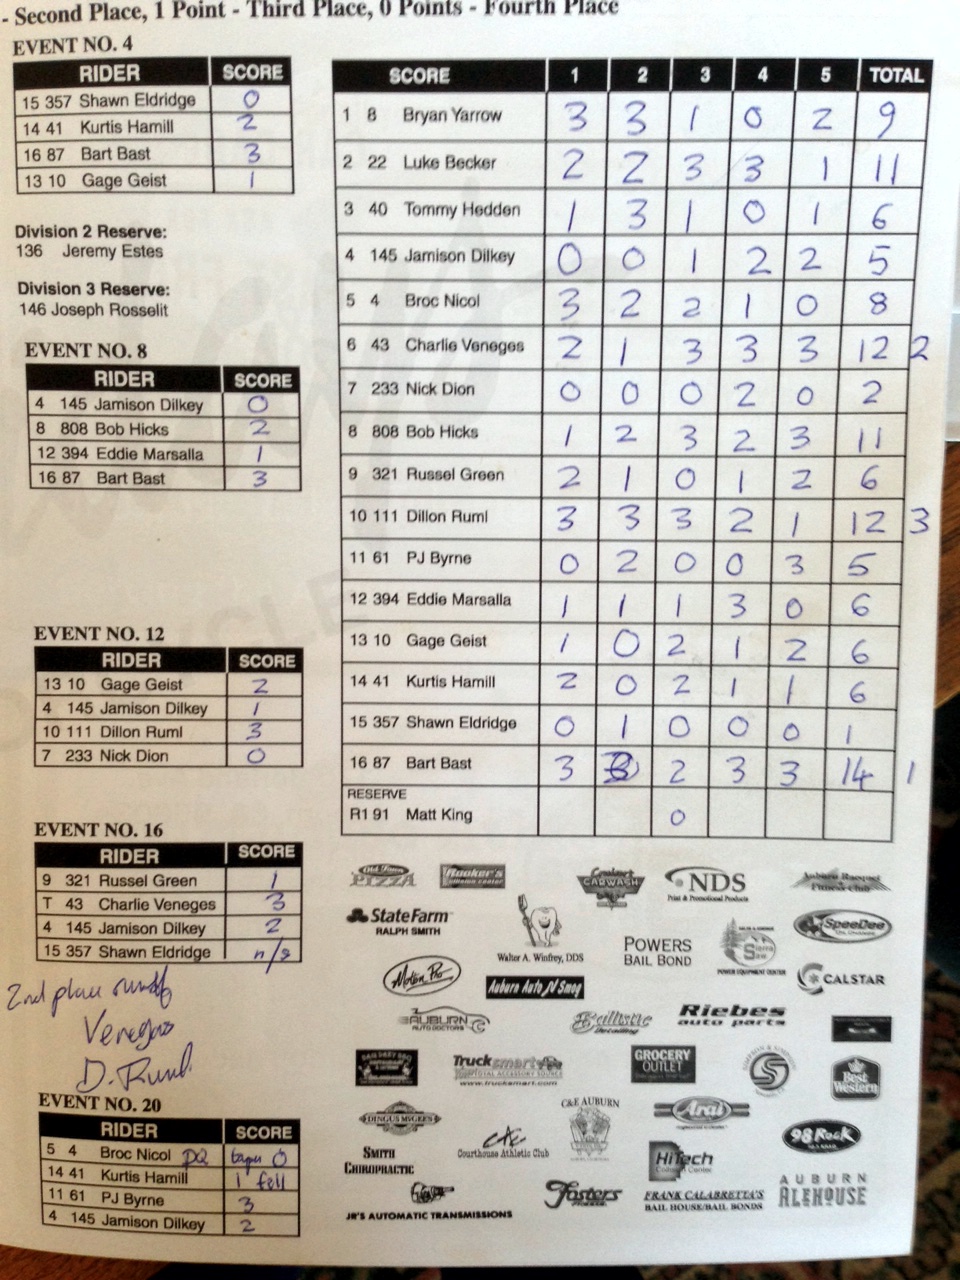 - Second Place, 1 Point - Third Place, 0 Points - Fourth Place
EVENT NO. 4
RIDER SCORE
15 357 Shawn Eldridge 0
14 41 Kurtis Hamill 2
16 87 Bart Bast 3
13 10 Gage Geist 1
Division 2 Reserve:
136 Jeremy Estes
Division 3 Reserve:
146 Joseph Rosselit
EVENT NO. 8
RIDER SCORE
4 145 Jamison Dilkey 0
8 808 Bob Hicks 2
12 394 Eddie Marsalla 1
16 87 Bart Bast 3
EVENT NO. 12
RIDER SCORE
13 10 Gage Geist 2
4 145 Jamison Dilkey 1
10 111 Dillon Ruml 3
7 233 Nick Dion 0
EVENT NO. 16
RIDER SCORE
9 321 Russel Green 1
T 43 Charlie Veneges 3
4 145 Jamison Dilkey 2
15 357 Shawn Eldridge n/s
2nd place runoff
Venegas
D. Ruml
EVENT NO. 20
RIDER SCORE
5 4 Broc Nicol DQ tapes 0
14 41 Kurtis Hamill 1 fell
11 61 PJ Byrne 3
4 145 Jamison Dilkey 2
SCORE 1 2 3 4 5 TOTAL
1 8 Bryan Yarrow 3 3 1 0 2 9
2 22 Luke Becker 2 2 3 3 1 11
3 40 Tommy Hedden 1 3 1 0 1 6
4 145 Jamison Dilkey 0 0 1 2 2 5
5 4 Broc Nicol 3 2 2 1 0 8
6 43 Charlie Veneges 2 1 3 3 3 12 2
7 233 Nick Dion 0 0 0 2 0 2
8 808 Bob Hicks 1 2 3 2 3 11
9 321 Russel Green 2 1 0 1 2 6
10 111 Dillon Ruml 3 3 3 2 1 12 3
11 61 PJ Byrne 0 2 0 0 3 5
12 394 Eddie Marsalla 1 1 1 3 0 6
13 10 Gage Geist 1 0 2 1 2 6
14 41 Kurtis Hamill 2 0 2 1 1 6
15 357 Shawn Eldridge 0 1 0 0 0 1
16 87 Bart Bast 3 3 2 3 3 14 1
RESERVE
R1 91 Matt King 0
Old Town PIZZA
CARWASH
NDS
Print & Promotional Products
Auburn Racquet & Fitness Club
StateFarm
RALPH SMITH
Walter A. Winfrey, DDS
POWERS BAIL BOND
Sierra Saw
POWER EQUIPMENT CENTER
SpeeDee
Motion Pro
Auburn Auto N Smog
CALSTAR
AUBURN AUTO DOCTORS
Ballistic Detailing
Riebes auto parts
Trucksmart
www.trucksmart.com
GROCERY OUTLET
Best Western
DINGUS MCGEE'S
CAC
Courthouse Athletic Club
C&E AUBURN
Arai
98 Rock
SMITH CHIROPRACTIC
HiTech
AUBURN ALEHOUSE
JR'S AUTOMATIC TRANSMISSIONS
Fosters
FRANK CALABRETTA'S
BAIL HOUSE/BAIL BONDS